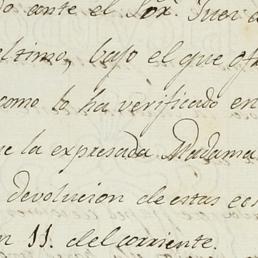 o ante el Sor. Juez
ltimo, bajo el que
como lo ha verificado en
e la expresada Madama
devolucion de estas
n 11. del corriente.